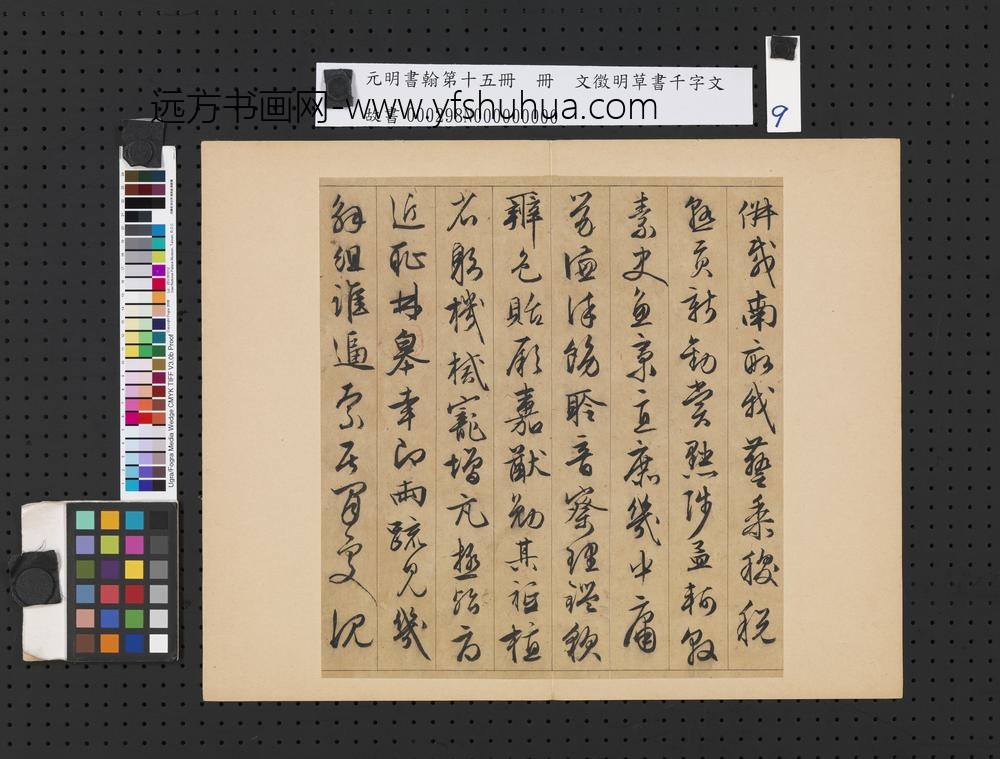 元明書翰第十五冊 冊 文徵明草書千字文
故書000298N000000000
远方书画网-www.yfshuhua.com
9
俶載南畝我藝黍稷稅
熟貢新勸賞黜陟孟軻敦
素史魚秉直庶幾中庸
勞謙謹飭聆音察理鑑貌
辨色貽厥嘉猷勉其祗植
省躬譏誡寵增亢極殆辱
近恥林皋幸即兩疏見幾
解組誰逼索居閒處沉